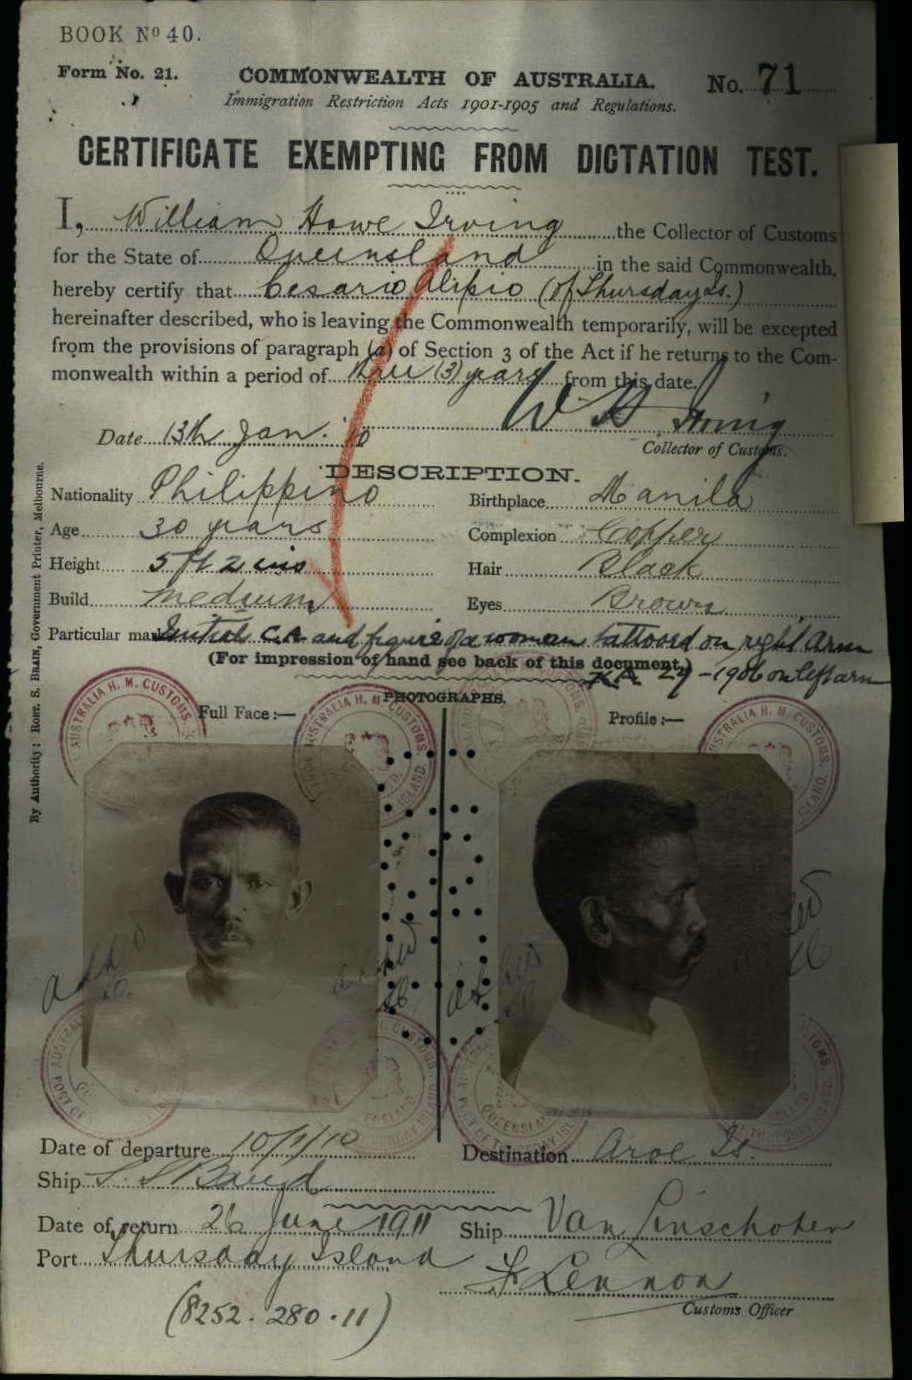 BOOK No 40.
Form No. 21.
COMMONWEALTH OF AUSTRALIA.
No. 71
Immigration Restriction Acts 1901-1905 and Regulations.
CERTIFICATE EXEMPTING FROM DICTATION TEST.
I, William Howe Irving the Collector of Customs
for the State of Queensland in the said Commonwealth,
hereby certify that Cesario Alipio (of Thursday Is.)
hereinafter described, who is leaving the Commonwealth temporarily, will be excepted
from the provisions of paragraph (a) of Section 3 of the Act if he returns to the Com-
monwealth within a period of three (3) years from this date.
W H Irving
Date 13th Jan. '10
Collector of Customs.
DESCRIPTION.
Nationality Philippino
Birthplace Manila
Age 30 years
Complexion Copper
Height 5 ft 2 ins
Hair Black
Build medium
Eyes Brown
Particular marks Initial C.A. and figure of a woman tattooed on right arm
(For impression of hand see back of this document.)
K.A. 29-1906 on left arm
PHOTOGRAPHS.
Full Face :—
Profile :—
By Authority: ROBT. S. BRAIN, Government Printer, Melbourne.
AUSTRALIA H. M. CUSTOMS
Date of departure 10/1/10
Destination Aroe Is.
Ship S.S
Date of return 26 June 1911
Ship Van Linschoten
Port Thursday Island
F Lennon
Customs Officer
(8252.280.11)